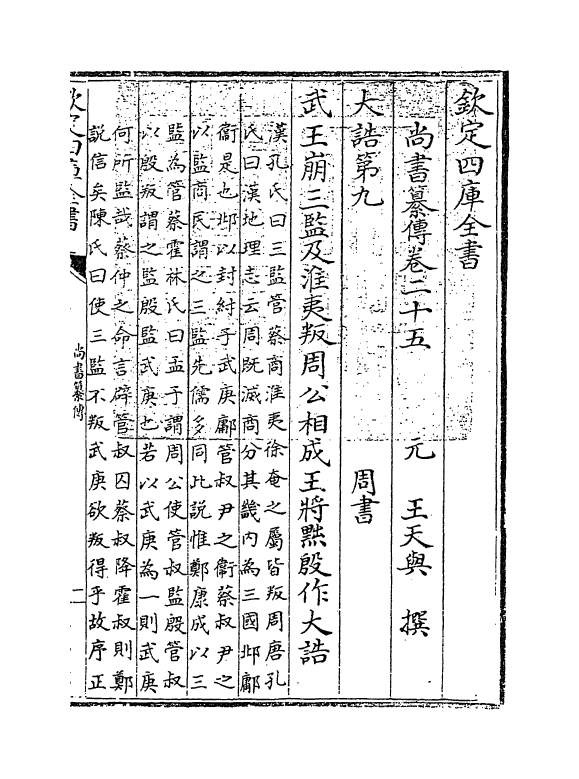 欽定四庫全書
尚書纂傳卷二十五
元 王天與 撰
大誥第九
周書
武王崩三監及淮夷叛周公相成王將黜殷作大誥
漢孔氏曰三監管蔡商淮夷徐奄之屬皆叛周唐孔
氏曰漢地理志云周既滅商分其畿内為三國邶鄘
衞是也邶以封紂子武庚鄘管叔尹之衞蔡叔尹之
以監商民謂之三監先儒多同此說惟鄭康成以三
監為管蔡霍林氏曰孟子謂周公使管叔監殷管叔
以殷叛謂之監殷監武庚也若以武庚為一則武庚
何所監哉蔡仲之命言辟管叔囚蔡叔降霍叔則鄭
說信矣陳氏曰使三監不叛武庚欲叛得乎故序正
欽定四庫全書
尚書纂傳
二